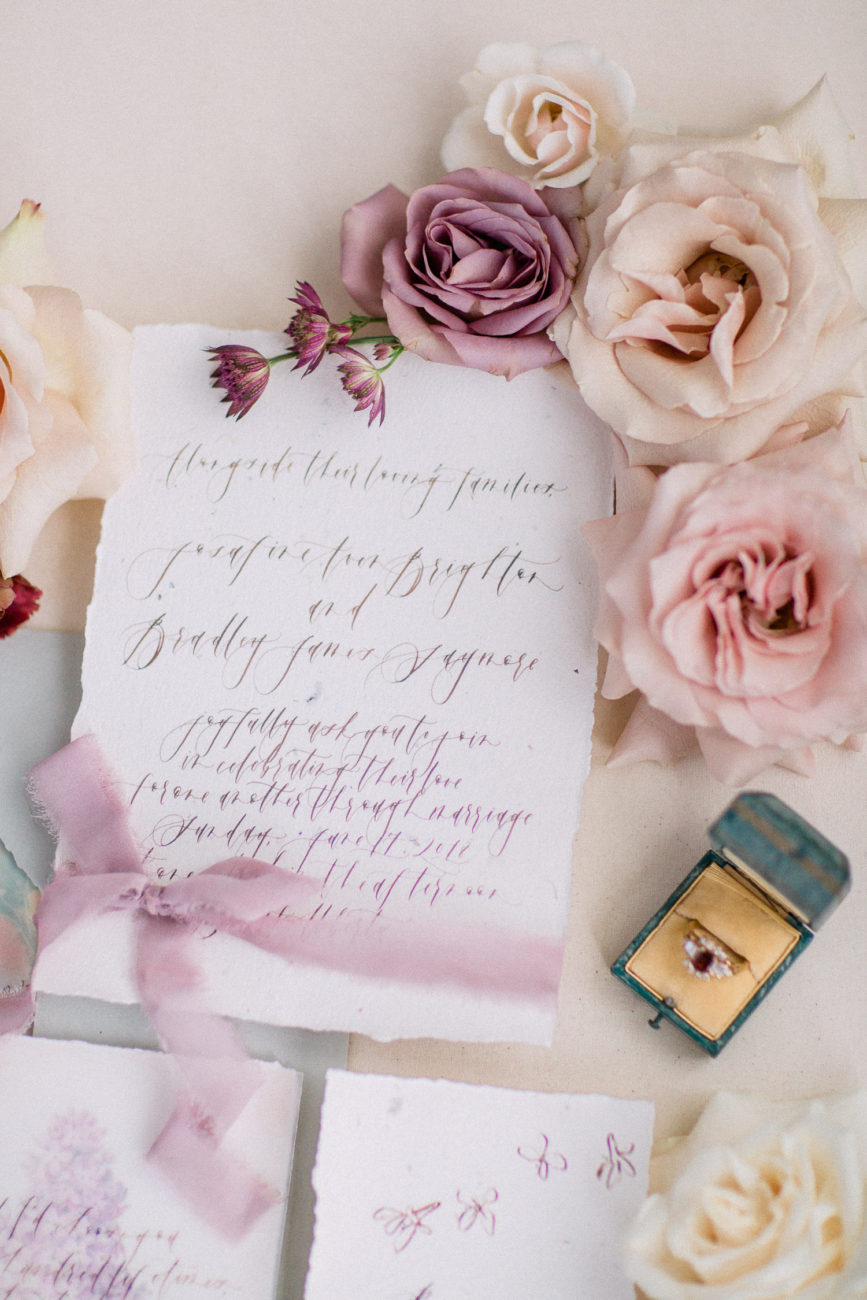 Alongside their loving families,
Josafine Ann Brighton
and
Bradley James Saymore
joyfully ask you to join
in celebrating their love
for one another through marriage
Sunday, June 17, 2018
the afternoon
you
hundred times